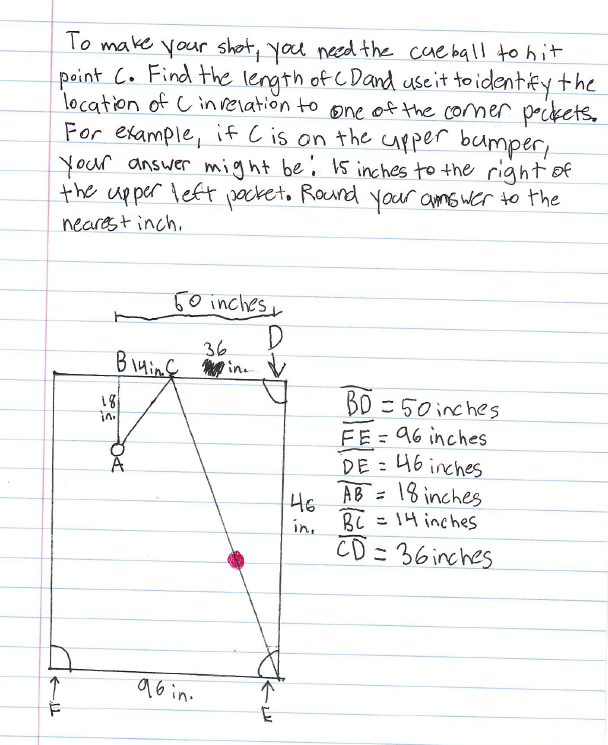 To make your shot, you need the cueball to hit
point C. Find the length of CD and use it to identify the
location of C in relation to one of the corner pockets.
For example, if C is on the upper bumper,
your answer might be: 15 inches to the right of
the upper left pocket. Round your amswer to the
nearest inch.
50 inches
D
B 14in. C
36
in.
18
in.
A
46
in.
BD = 50 inches
FE = 96 inches
DE = 46 inches
AB = 18 inches
BC = 14 inches
CD = 36 inches
96 in.
F
E